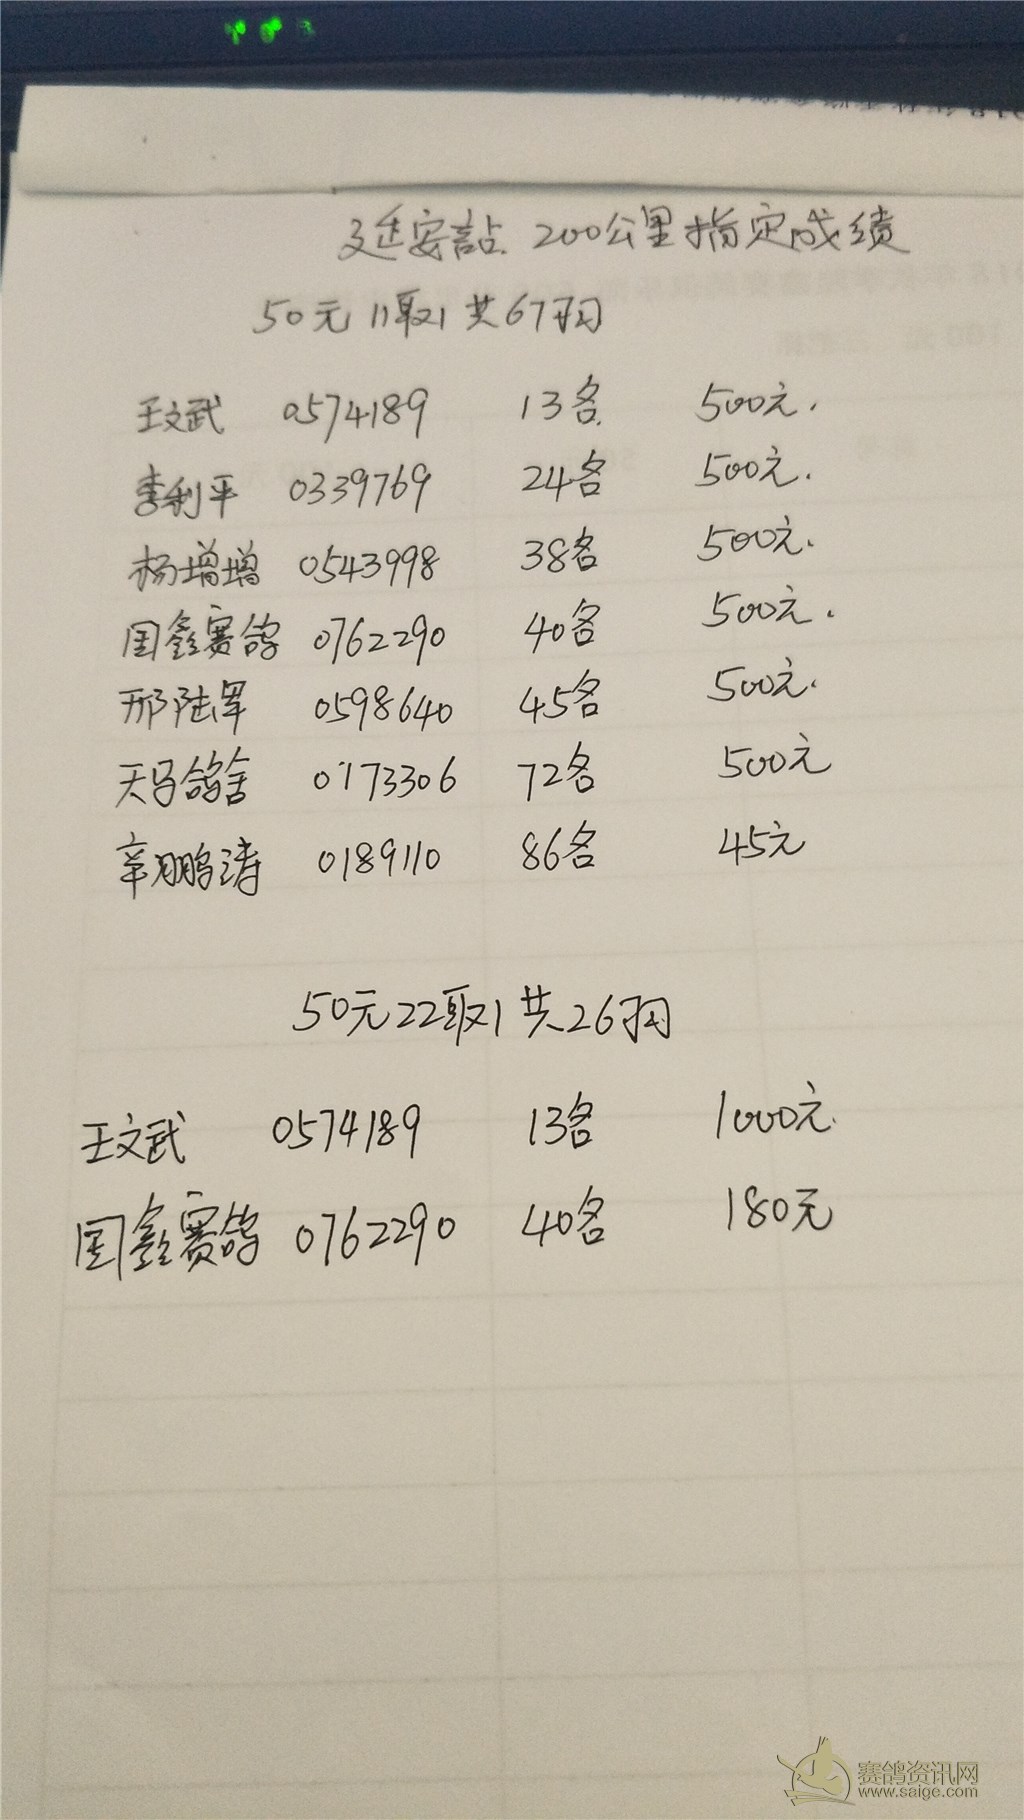 延安站 200公里指定成绩
50元11取1共67羽
王文武 0574189 13名 500元.
李利平 0339769 24名 500元.
杨增增 0543998 38名 500元.
国鑫赛鸽 0762290 40名 500元.
邢陆军 0598640 45名 500元.
天马鸽舍 0173306 72名 500元
辛鹏涛 0189110 86名 45元
50元22取1共26羽
王文武 0574189 13名 1000元.
国鑫赛鸽 0762290 40名 180元
赛鸽资讯网
www.saige.com